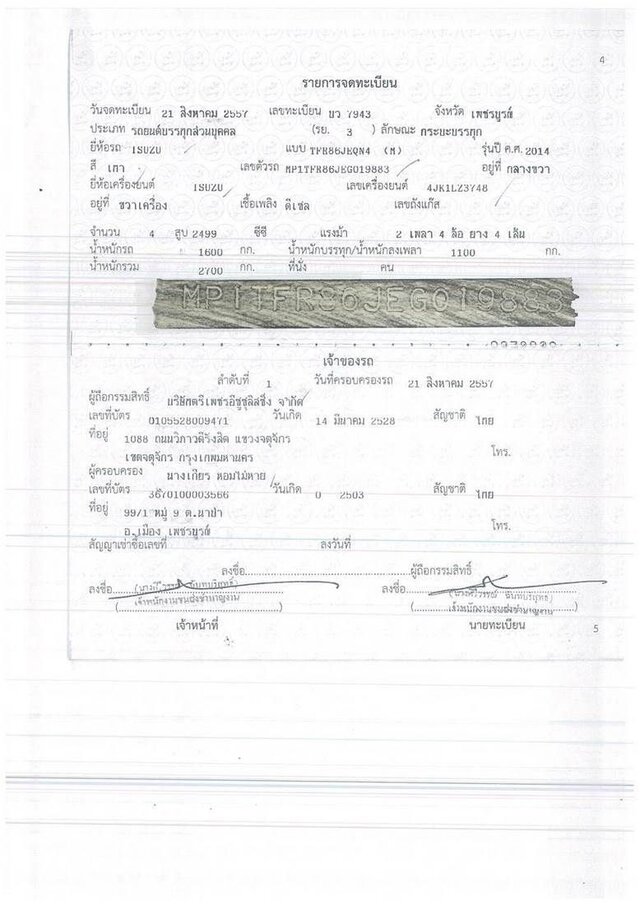 4
รายการจดทะเบียน
วันจดทะเบียน 21 สิงหาคม 2557 เลขทะเบียน บว 7943 จังหวัด เพชรบูรณ์
ประเภท รถยนต์บรรทุกส่วนบุคคล (รย. 3 ) ลักษณะ กระบะบรรทุก
ยี่ห้อรถ ISUZU แบบ TFR86JEQN4 (M) รุ่นปี ค.ศ. 2014
สี เทา เลขตัวรถ MP1TFR86JEG019883 อยู่ที่ กลางขวา
ยี่ห้อเครื่องยนต์ ISUZU เลขเครื่องยนต์ 4JK1LZ3748
อยู่ที่ ขวาเครื่อง เชื้อเพลิง ดีเซล เลขถังแก๊ส
จำนวน 4 สูบ 2499 ซีซี แรงม้า 2 เพลา 4 ล้อ ยาง 4 เส้น
น้ำหนักรถ 1600 กก. น้ำหนักบรรทุก/น้ำหนักลงเพลา 1100 กก.
น้ำหนักรวม 2700 กก. ที่นั่ง คน
MP1TFR86JEG019883
เจ้าของรถ
ลำดับที่ 1 วันที่ครอบครองรถ 21 สิงหาคม 2557
ผู้ถือกรรมสิทธิ์ บริษัทตรีเพชรอีซูซุลิสซิ่ง จำกัด
เลขที่บัตร 0105528009471 วันเกิด 14 มีนาคม 2528 สัญชาติ ไทย
ที่อยู่ 1088 ถนนวิภาวดีรังสิต แขวงจตุจักร
เขตจตุจักร กรุงเทพมหานคร โทร.
ผู้ครอบครอง นางเกียร หอมไม่หาย
เลขที่บัตร 3670100003566 วันเกิด 0 2503 สัญชาติ ไทย
ที่อยู่ 99/1 หมู่ 9 ต.นาป่า
อ.เมือง เพชรบูรณ์ โทร.
สัญญาเช่าซื้อเลขที่ ลงวันที่
ลงชื่อ ผู้ถือกรรมสิทธิ์
ลงชื่อ ลงชื่อ
(เจ้าพนักงานขนส่งชำนาญงาน) (เจ้าพนักงานขนส่งชำนาญงาน)
เจ้าหน้าที่ นายทะเบียน
5